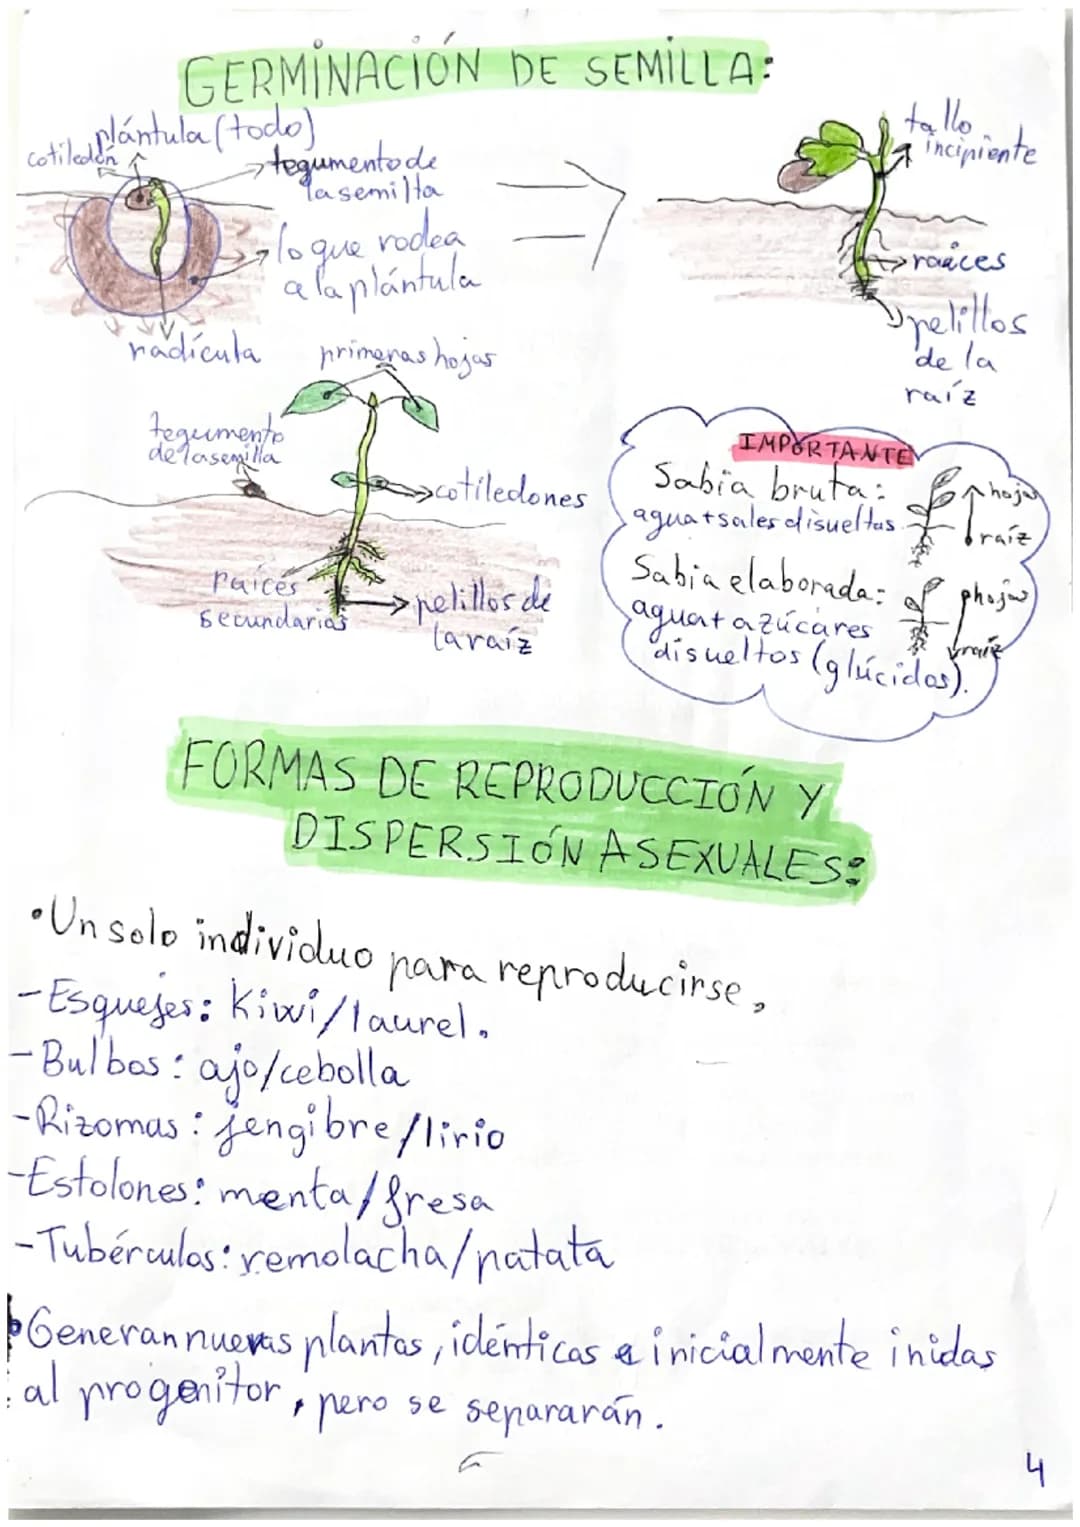 GERMINACIÓN DE SEMILLA:
plántula (todo)
cotiledón
tegumento de
la semilla
lo que rodea
a la plántula
radícula
tallo
incipiente
raíces
pelillos
de la
raíz
primeras hojas
tegumento
de la semilla
cotiledones
raíces
secundarias
pelillos de
la raíz
IMPORTANTE
Sabia bruta:
agua + sales disueltas.
hojas
raíz
Sabia elaborada:
agua + azúcares
disueltos (glúcidos).
hojas
raíz
FORMAS DE REPRODUCCIÓN Y
DISPERSIÓN ASEXUALES:
•Un solo individuo para reproducirse.
-Esquejes: Kiwi/laurel.
-Bulbos: ajo/cebolla
-Rizomas: jengibre/lirio
-Estolones: menta/fresa
-Tubérculos: remolacha/patata
•Generan nuevas plantas, idénticas e inicialmente inidas
al progenitor, pero se separarán.
4